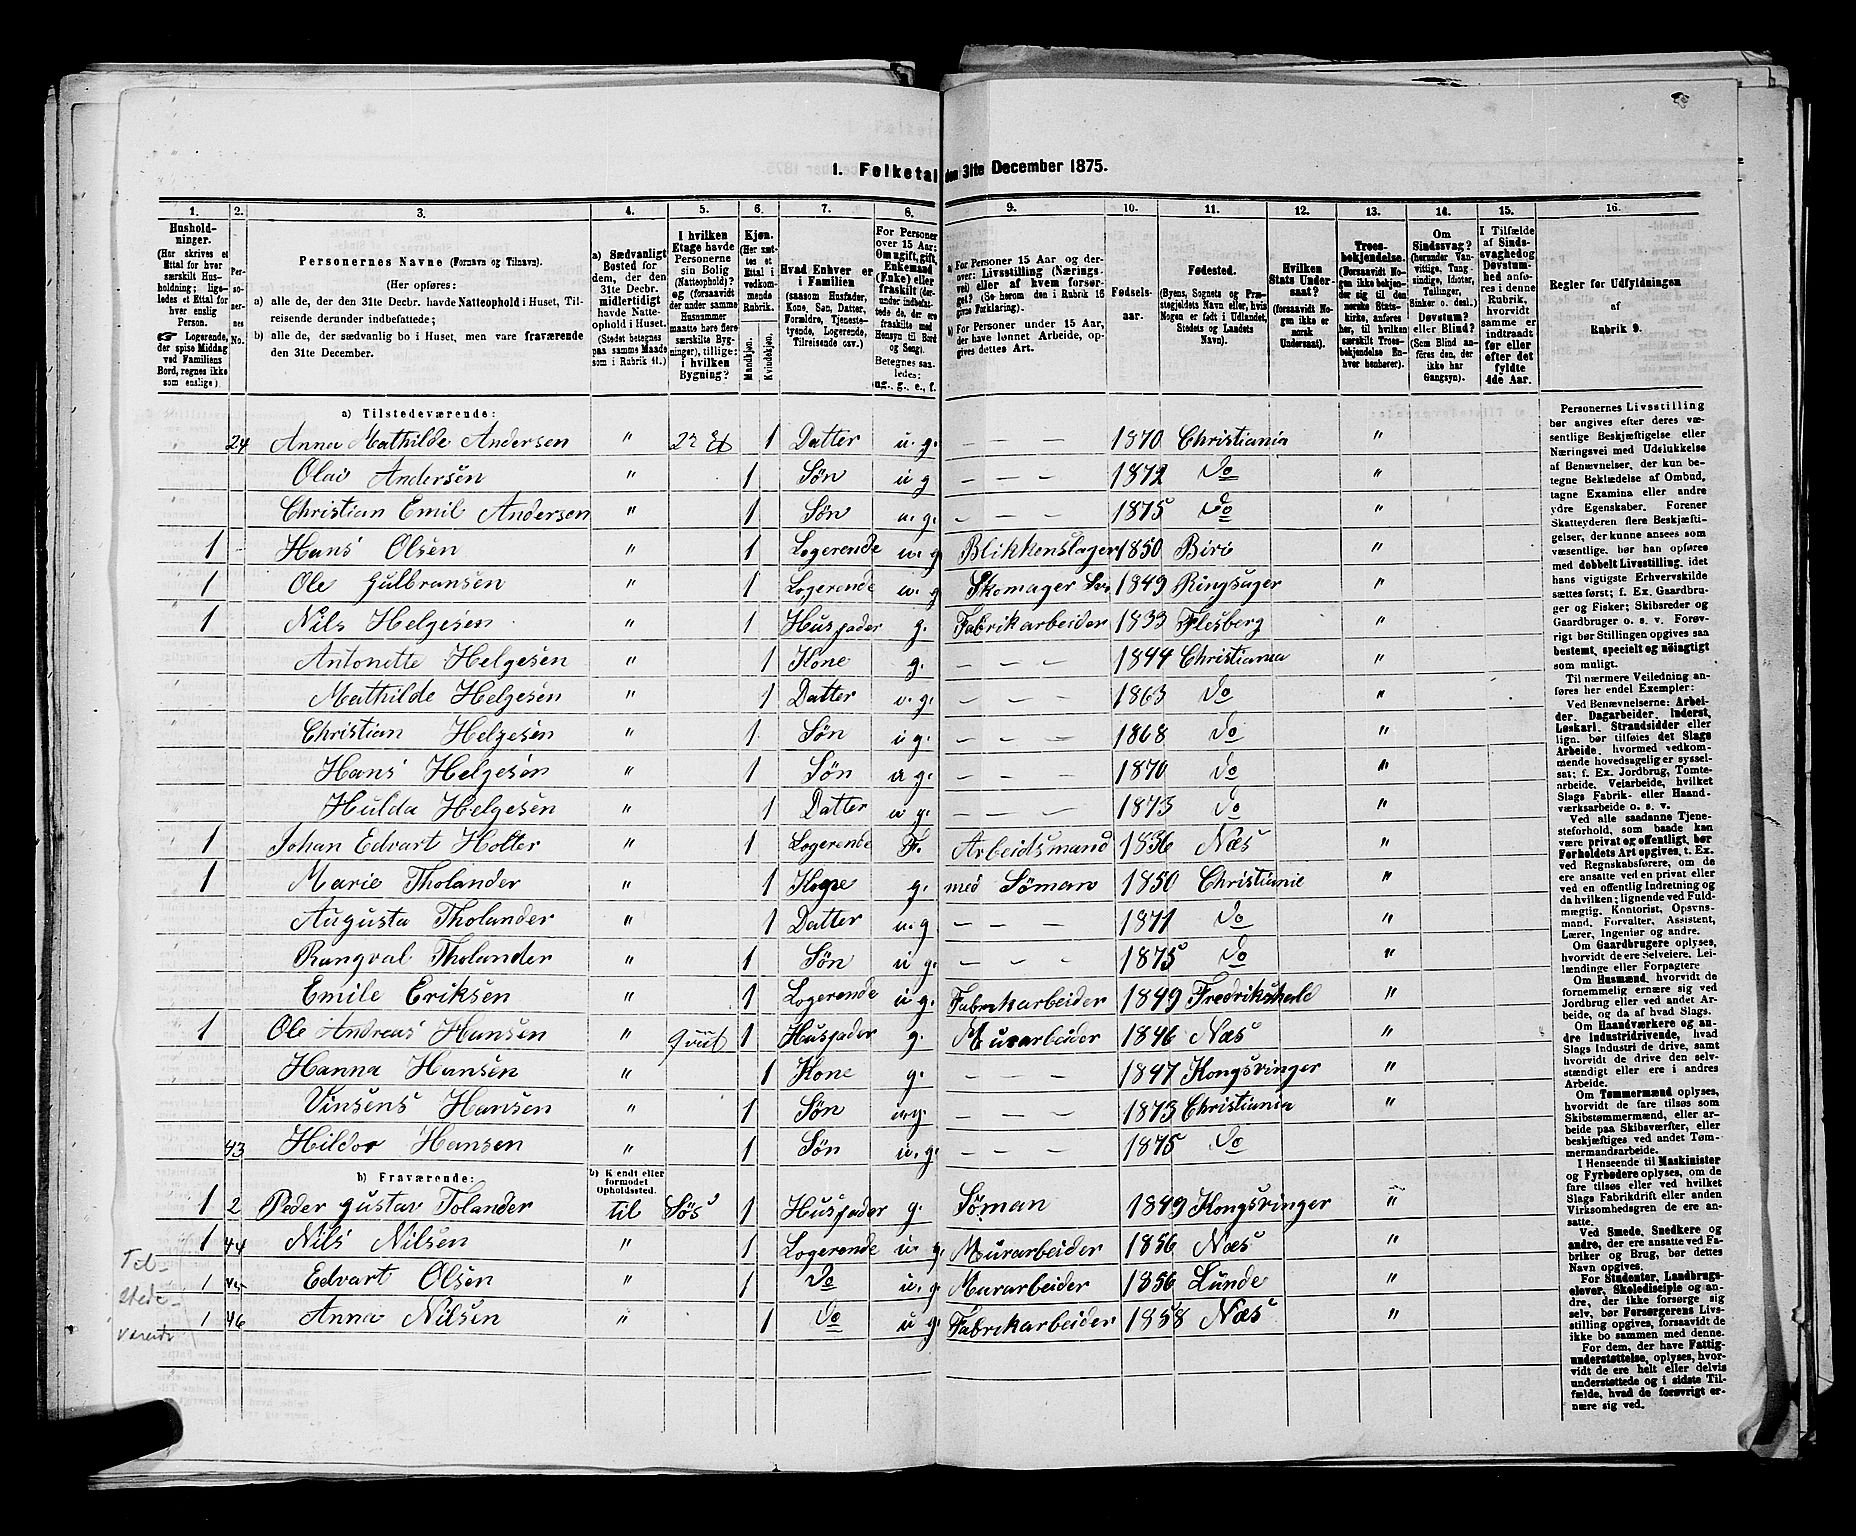 1. Folketal den 31te December 1875.
1. 2. 3. 4. 5. 6. 7. 8. 9. 10. 11. 12. 13. 14. 15. 16.
Hushold-
ninger.
(Her skrives et
Ettal for hver
særskilt Hus-
holdning; lige-
ledes et Ettal for
hver enslig
Person.
☞ Logerende,
der spise Middag
ved Familiens
Bord, regnes ikke
som enslige).
Per-
so-
ner-
nes
No.
Personernes Navne (Fornavn og Tilnavn).
(Her opføres:
a) alle de, der den 31te Decbr. havde Natteophold i Huset, Til-
reisende derunder indbefattede;
b) alle de, der sædvanlig bo i Huset, men vare fraværende
den 31te December.
a) Sædvanligt
Bosted for
dem, der den
31te Decbr.
midlertidigt
havde Natte-
ophold i Huset.
(Stedet betegnes
paa samme Maade
som i Rubrik 11.)
I hvilken
Etage havde
Personerne
sin Bolig
(Natteophold)?
og (forsaavidt
der under samme
Husnummer
maatte høre flere
særskilte Byg-
ninger), tillige:
i hvilken
Bygning?
Kjøn.
(Her sæt-
tes et
Ettal i
vedkom-
mende
Rubrik.
Mandkjøn.
Kvindekjøn.
Hvad Enhver er
i Familien
(saasom Husfader,
Kone, Søn, Datter,
Forældre, Tjeneste-
tyende, Logerende,
Tilreisende osv.)
For Personer
over 15 Aar:
Om ugift, gift,
Enkemand
(Enke) eller
fraskilt
Betegnes saa-
ledes:
ug., g., e., f.
a) For Personer 15 Aar og der-
over: Livsstilling (Nærings-
vei) eller af hvem forsør-
get? (Se herom den i Rubrik 16
givne Forklaring).
b) For Personer under 15 Aar,
der have lønnet Arbeide, op-
gives dettes Art.
Fødsels-
aar.
Fødested.
(Byens, Sognets og Præ-
stegjeldets Navn eller, hvis
Nogen er født i Udlandet,
Stedets og Landets
Navn).
Hvilken
Stats Under-
saat?
(forsaavidt No-
gen ikke er
norsk
Undersaat).
Troes-
bekjendelse.
(Forsaavidt No-
gen ikke bekjen-
der sig til den
norske Stats-
kirke, anføres
her, til hvilken
særskilt Troes-
bekjendelse En-
hver henhører).
Om
Sindssvag?
(herunder Van-
vittige, Tung-
sindige, Idioter,
Tullinger,
Sinker o. desl.)
Døvstum?
eller Blind?
(Som Blind an-
føres den, der
ikke har
Gangsyn).
I Tilfælde
af Sinds-
svaghed og
Døvstum-
hed anfø-
res i denne
Rubrik,
hvorvidt
samme er
indtraadt
før eller
efter det
fyldte
4de Aar.
Regler for Udfyldningen
af
Rubrik 9.
a) Tilstedeværende:
24 Anna Mathilde Andersen " 1 Datter u. g. – – – 1870 Christiania "
Olav Andersen " 1 Søn u g – – – 1872 Do "
Christian Emil Andersen " 1 Søn u. g. – – – 1875 Do "
1 Hans Olsen " 1 Logerende u. g Blikkenslager 1850 Biri "
1 Ole Gulbransen " 1 Logerende u. g Skomager 1849 Ringsager "
1 Nils Helgesen " 1 Husfader g. Fabrikarbeider 1833 Flesberg "
Antonette Helgesen " 1 Kone g. – – – 1844 Christiania "
Mathilde Helgesen " 1 Datter u. g. – – – 1863 Do "
Christian Helgesen " 1 Søn u g. – – – 1868 Do "
Hans Helgesen " 1 Søn u g. – – – 1870 Do "
Hulda Helgesen " 1 Datter u g. – – – 1873 Do "
1 Johan Edvart Holter " 1 Logerende F. Arbeidsmand 1836 Næs "
1 Marie Tholander " 1 Kone g. med Söman 1850 Christianie "
Augusta Tholander " 1 Datter u. g. – – – 1871 Do "
Rangval Tholander " 1 Søn u g. – – – 1875 Do "
Emile Eriksen " 1 Logerende u g. Fabrikarbeider 1849 Fredrikshald "
1 Ole Andreas Hansen " qvist 1 Husfader g. Murarbeider 1846 Næs "
Hanna Hansen " 1 Kone g. – – – 1847 Kongsvinger "
Vinsens Hansen " 1 Søn u g. – – – 1873 Christiania "
43 Hildor Hansen " 1 Søn u. g. – – – 1875 Do "
b) Fraværende:
b) Kjendt eller
formodet
Opholdssted.
1 2 Peder gustav Tolander til Søs 1 Husfader g. Söman 1849 Kongsvinger "
1 44 Nils Nilsen " 1 Logerende u. g. Murarbeider 1856 Næs "
1 45 Edvart Olsen " 1 Do u. g. Murarbeider 1856 Lunde "
1 46 Anna Nilsen " 1 Do u g. Fabrikarbeider 1858 Næs "
Til-
stede-
værende
Personernes Livsstilling
bør angives efter deres væ-
sentlige Beskjæftigelse eller
Næringsvei med Udelukkelse
af Benævnelser, der kun be-
tegne Beklædelse af Ombud,
tagne Examina eller andre
ydre Egenskaber. Forener
Skatteyderen flere Beskjæfti-
gelser, der kunne ansees som
væsentlige, bør han opføres
med dobbelt Livsstilling, idet
hans vigtigste Erhvervskilde
sættes først; f. Ex. Gaardbru-
ger og Fisker; Skibsreder og
Gaardbruger o. s. v. Forøv-
rigt bør Stillingen opgives saa
bestemt, specielt og nøiagtigt
som muligt.
Til nærmere Veiledning an-
føres her endel Exempler:
Ved Benævnelserne: Arbei-
der, Dagarbeider, Inderst,
Løskarl, Strandsidder eller
lign. bør tilføies det Slags
Arbeide, hvormed vedkom-
mende hovedsagelig er syssel-
sat; f. Ex. Jordbrug, Tomte-
arbeide, Veiarbeide, hvilket
Slags Fabrik- eller Haand-
værksarbeide o. s. v.
Ved alle saadanne Tjene-
steforhold, som baade kan
være privat og offentligt, bør
Forholdets Art opgives, t. Ex.
ved Regnskabsførere, om de
ere ansatte ved en privat eller
ved en offentlig Indretning og
da hvilken; lignende ved Fuld-
mægtig, Kontorist, Opsyns-
mand, Forvalter, Assistent,
Lærer, Ingeniør og andre.
Om Gaardbrugere oplyses,
hvorvidt de ere Selveiere, Lei-
lændinge eller Forpagtere
Om Husmænd, hvorvidt de
fornemmelig ernære sig ved
Jordbrug eller ved andet Ar-
beide, og da af hvad Slags.
Om Haandværkere og an-
dre Industridrivende, hvad
Slags Industri de drive, samt
hvorvidt de drive den selv-
stændigt eller ere i andres
Arbeide.
Om Tømmermænd oplyses,
hvorvidt de fare tilsøs som
Skibstømmermænd, eller ar-
beide paa Skibsværfter, eller
beskjæftiges ved andet Tøm-
mermandsarbeide.
I Henseende til Maskinister
og Fyrbødere oplyses, om de
fare tilsøs eller ved hvilket
Slags Fabrikdrift eller anden
Virksomhedsgren de ere an-
satte.
Ved Smede, Snedkere og
andre, der ere ansatte ved Fa-
briker og Brug, bør dettes
Navn opgives.
For Studenter, Landbrugs-
elever, Skoledisciple og an-
dre, der ikke forsørge sig
selv, bør Forsørgerens Livs-
stilling opgives, forsaavidt de
ikke bo sammen med denne.
For dem, der have Fattig-
understøttelse, oplyses, hvor-
vidt de ere helt eller delvis
understøttede og i sidste Til-
fælde, hvad de forøvrigt er-
nære sig ved.